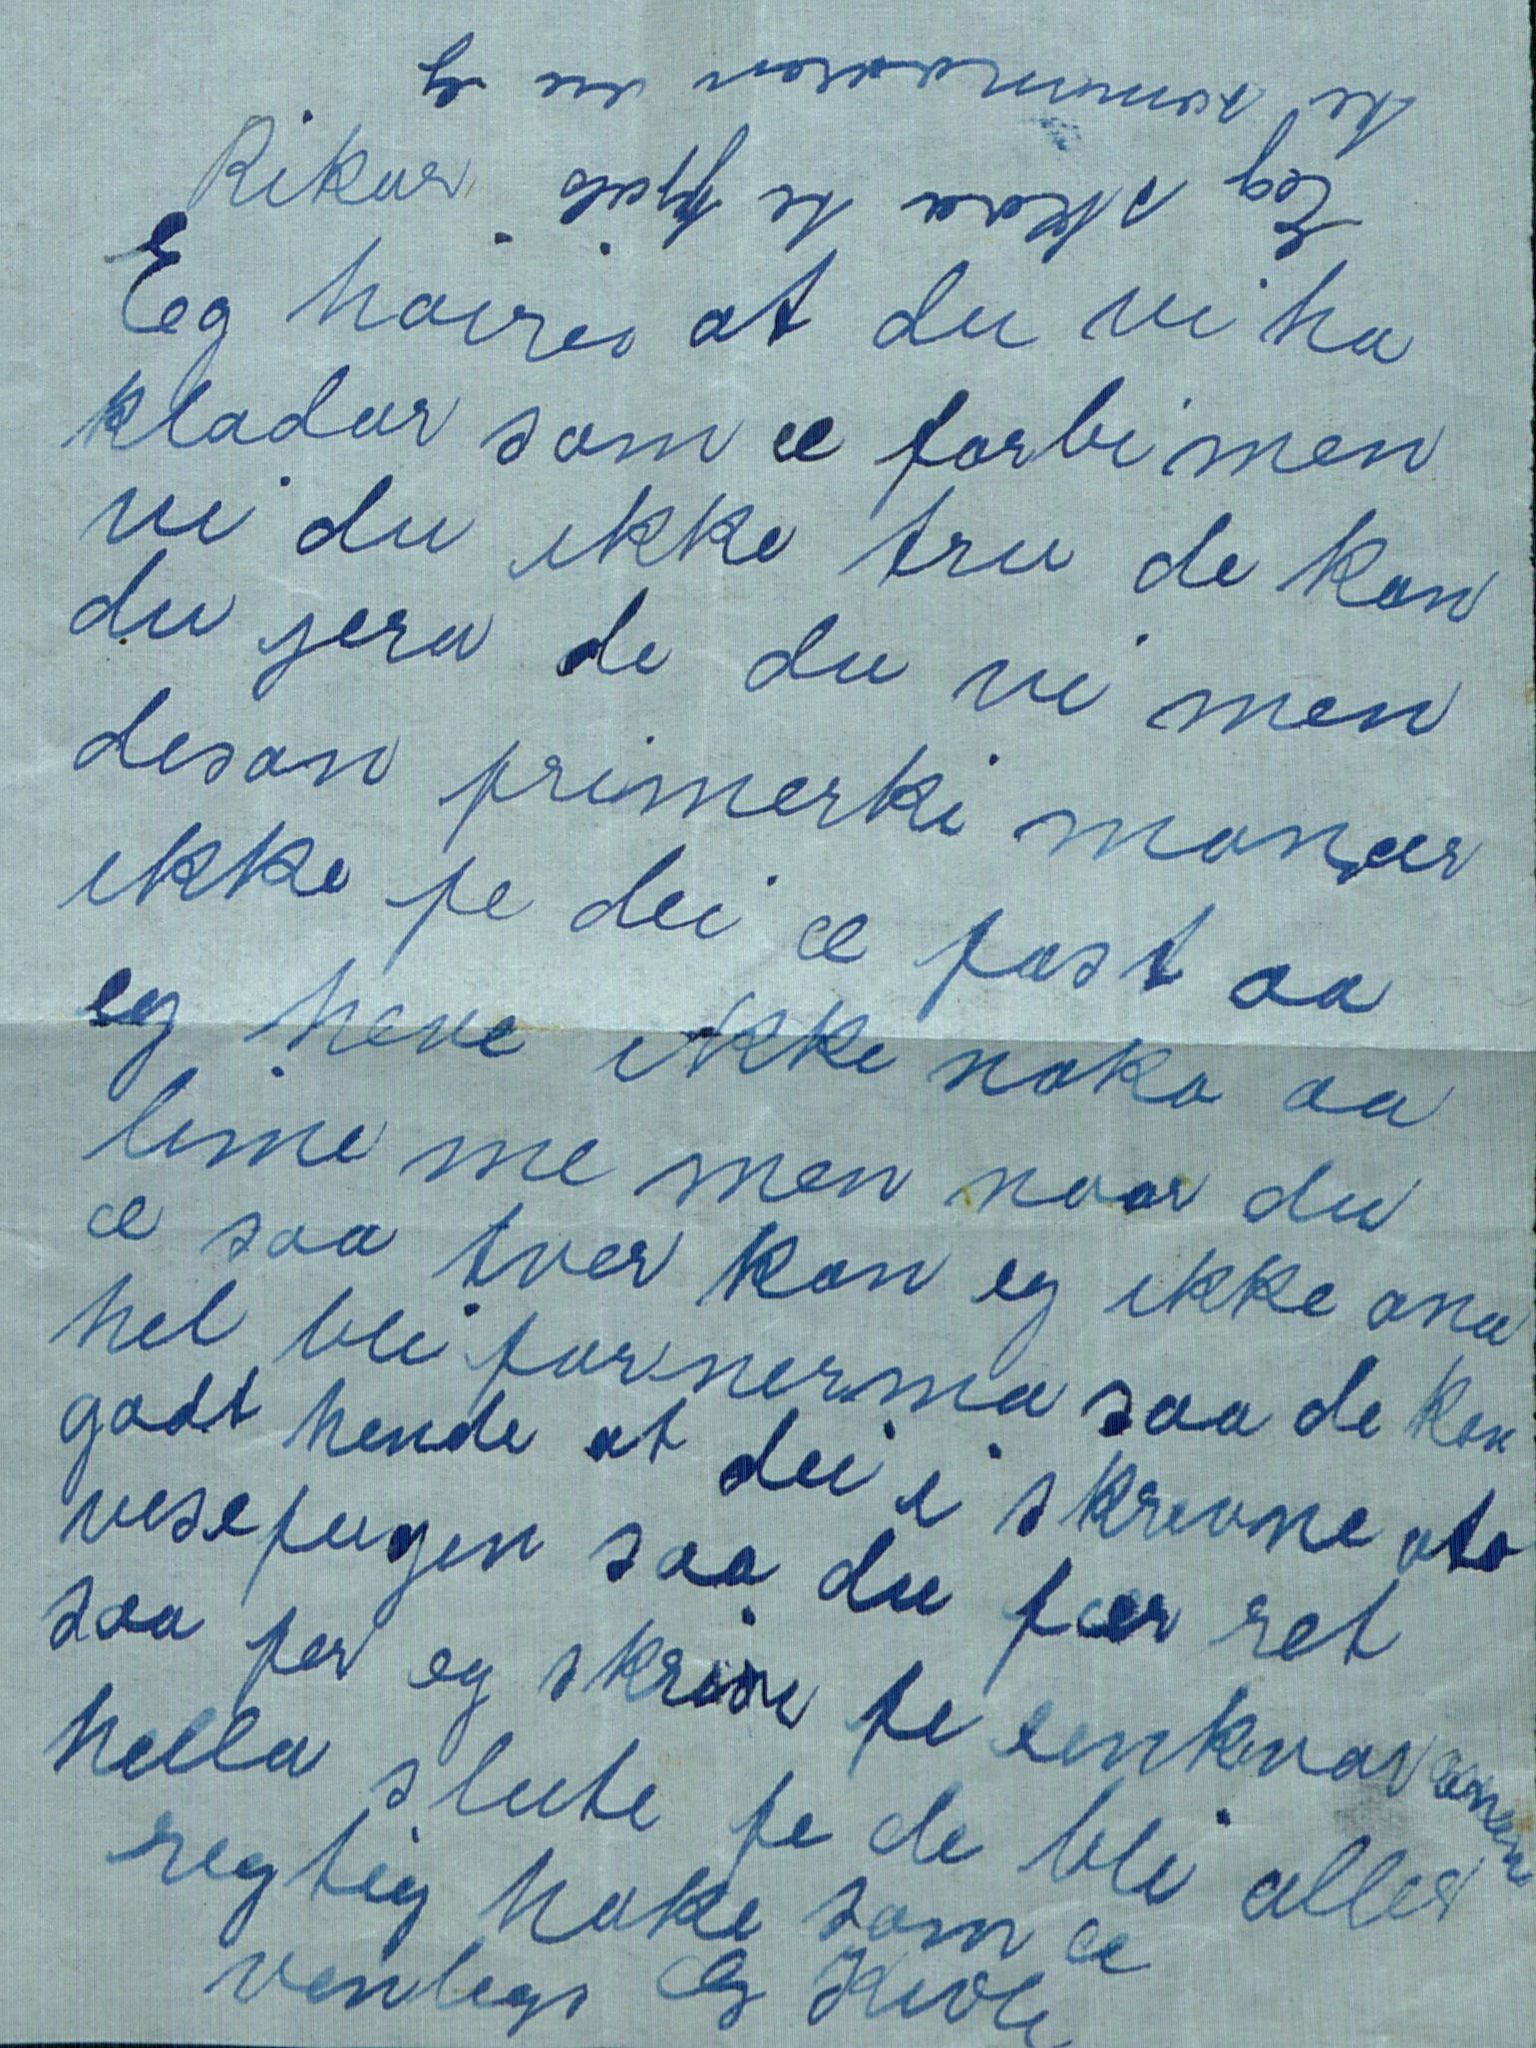 Rikar
Eg høire at du vi ha
kladar som æ forbi men
vi du ikke tru de kan
du jera de du vi men
desan primerki manær
ikke fe dei æ fast aa
eg heve ikke noko aa
lime me men naar du
æ saa tver kan eg ikke ana
hel bli fornerma saa de kan
godt hende at dei i skrevne ato
saa du fær ret
saa fer eg skrive te
hella slute fe de bli aller
regtig noke som æ
venlegs
Eg skaa te
te sommaaren